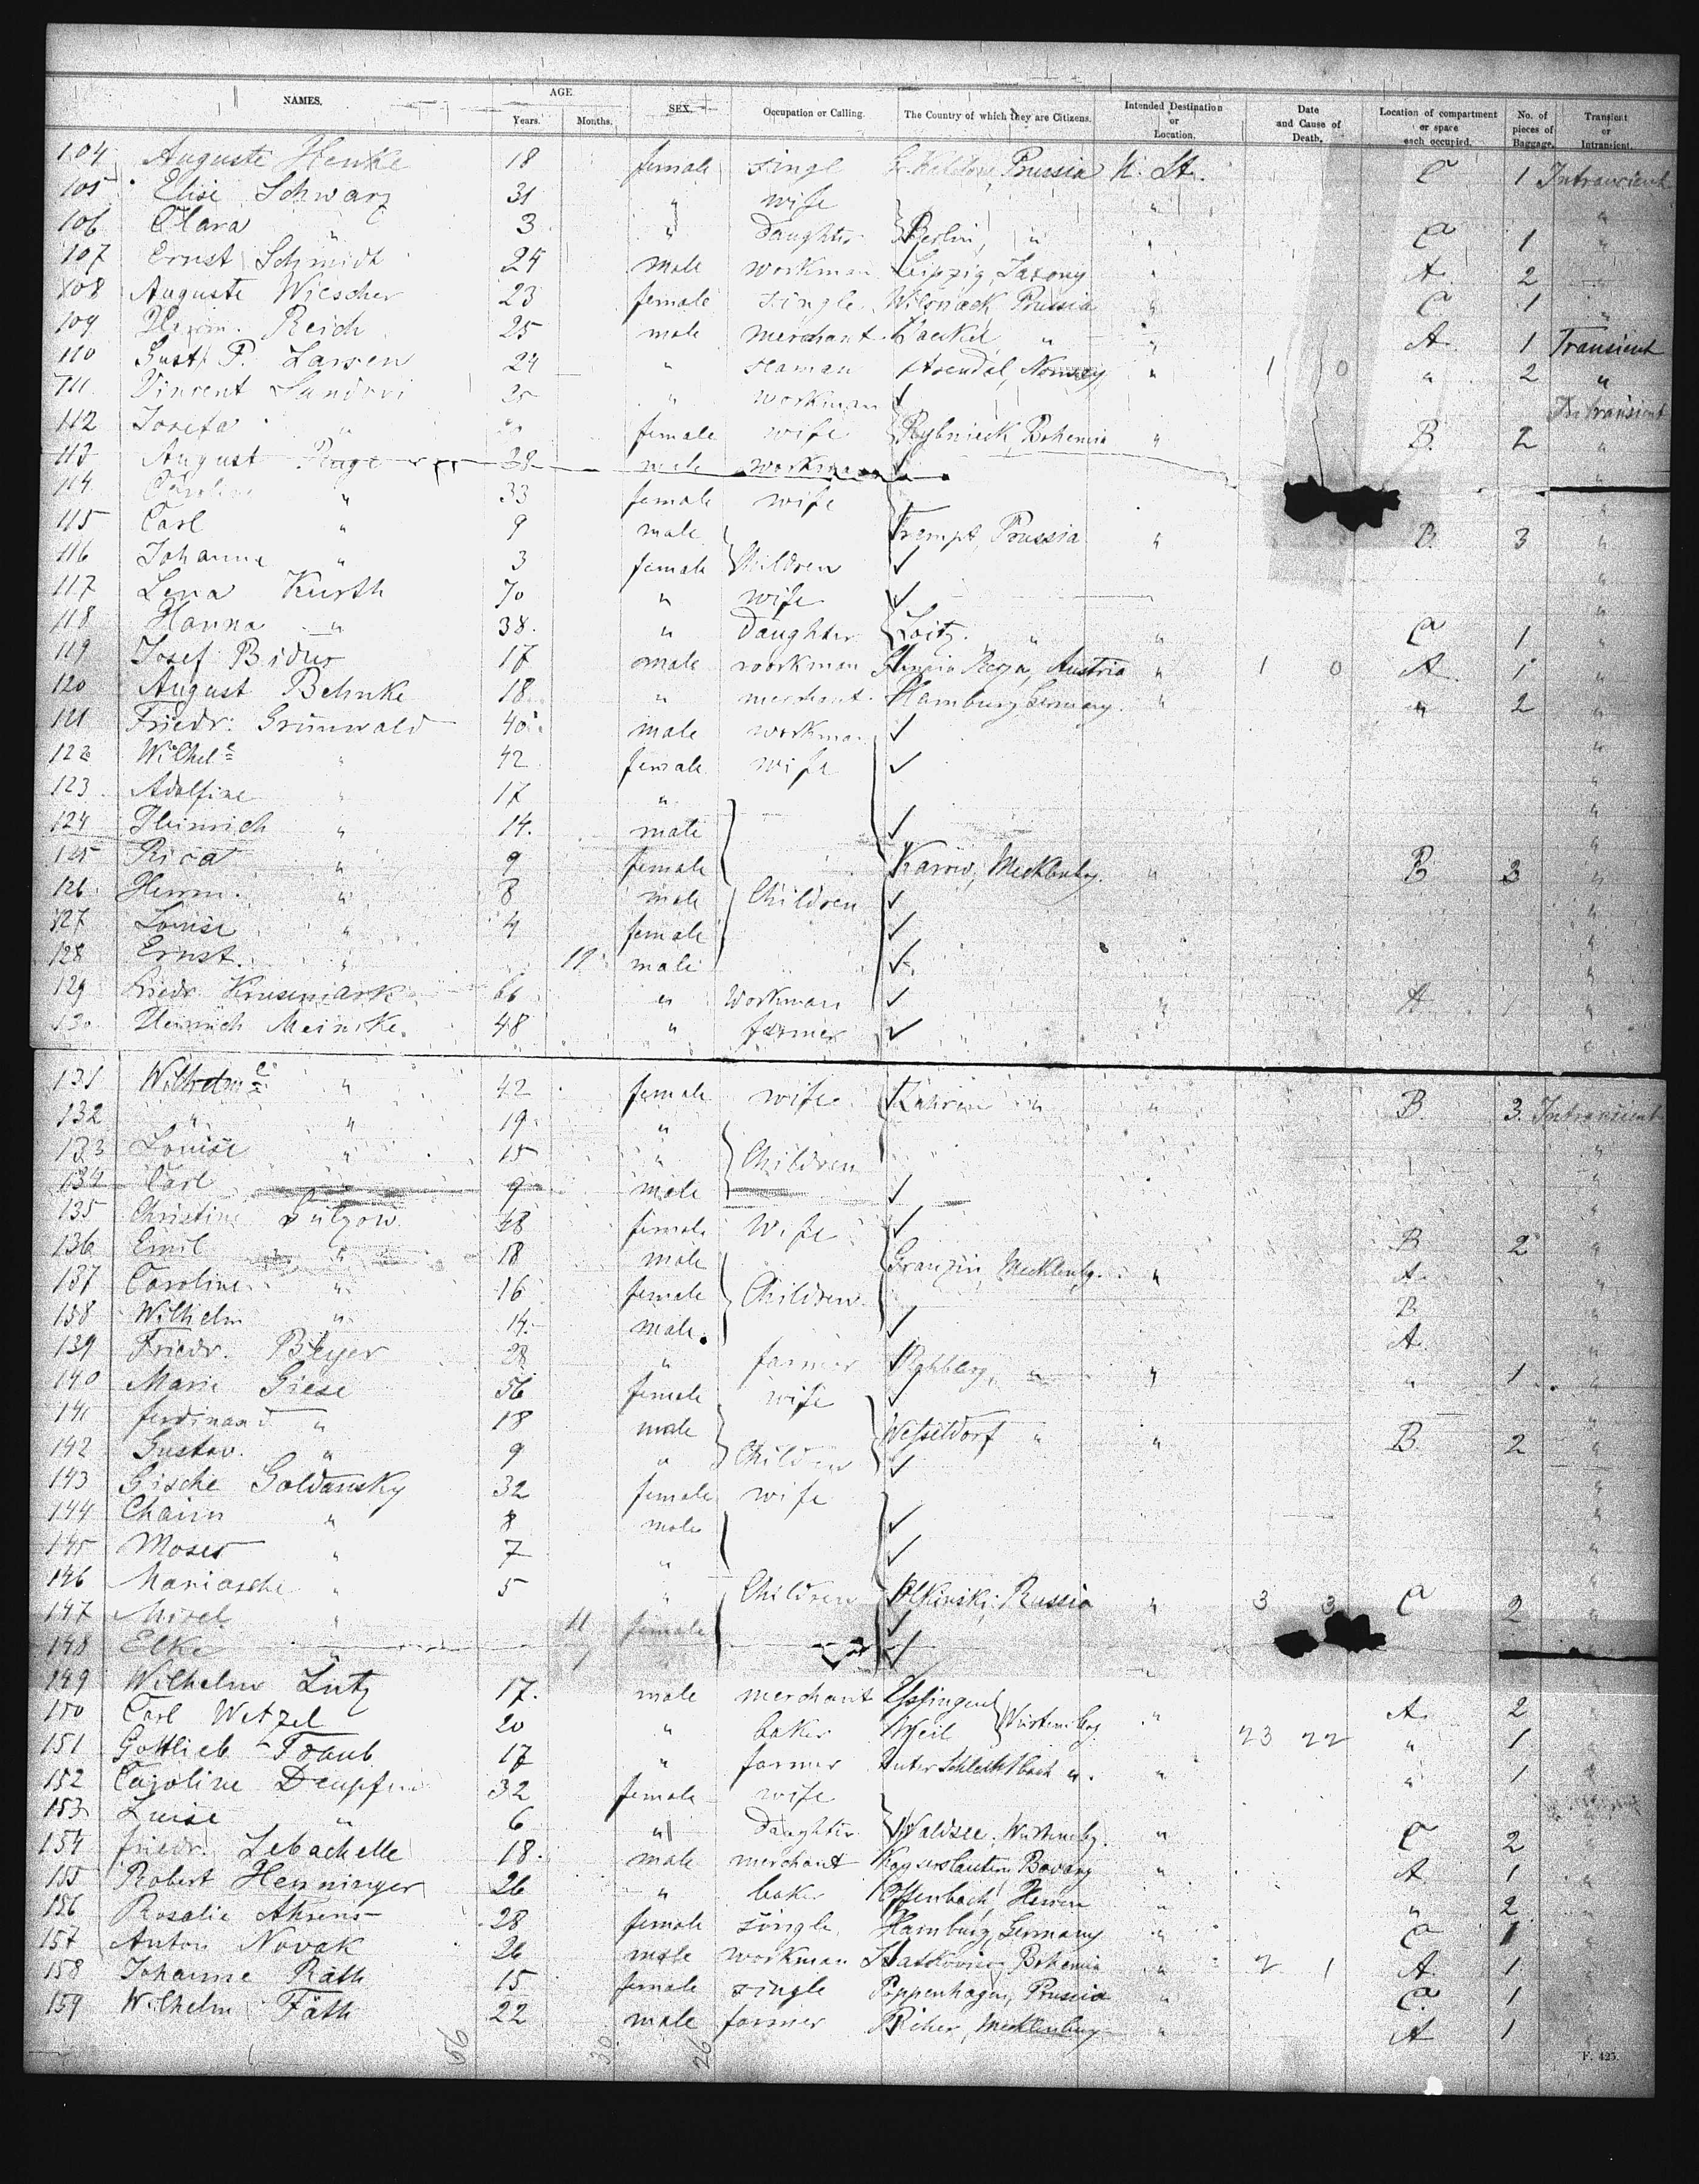 NAMES. AGE Years. Months. SEX. Occupation or Calling. The Country of which they are Citizens. Intended Destination or Location. Date and Cause of Death. Location of compartment or space each occupied. No. of pieces of Baggage. Transient or Intransient.
104 Auguste Henke 18 female singl Prussia N. St. C 1 Intransient
105 Elise Schwarz 31 " wife "
106 Clara " 3 " Daughter Berlin, " " C 1 "
107 Ernst Schmidt 24 male workman Leipzig, Saxony " A. 2 "
108 Auguste Wiescher 23 female single Wilsnack Prussia " C. 1 "
109 Herm. Reich 25 male merchant " " A. 1 Transient
110 Gust. P. Larsen 24 " seaman Arendal, Norway " 1 0 " 2 "
111 Vincent 25 " workman Intransient
112 Josefa " " female wife Rybnieck, Bohemia " B. 2 "
113 August 28 male workman "
114 Caroline " 33 female wife "
115 Carl " 9 male Trempt, Prussia " B. 3 "
116 Johanna " 3 female Children "
117 Lena Kurth 70 " wife "
118 Hanna " 38. " Daughter Loitz. " " C 1 "
119 Josef 17 male workman Austria " 1 0 A. 1 "
120 August Behnke 18. " merchant Hamburg, Germany. " " 2 "
121 Friedr. Grünwald 40 male workman "
122 Wilhele " 42 female wife "
123 Adolfine " 17 " "
124 Heinrich " 14. male "
125 Rica " 9 female Karow, Mecklenbg. " B 3 "
126 Herm. " 8 male Children "
127 Louise " 4 female "
128 Ernst. " 11 male "
129 Friedr. Krusemark 66 " Workman " A. 1 "
130 Heinrich Meincke. 48 " farmer "
131 Wilhelme " 42 female wife " " B. 3. Intransient
132 " " 19. " "
133 Louise " 15 " Children "
134 Carl " 9 male "
135 Christine Lützow 48 female Wife "
136 Emil " 18 male Granzin, Mecklenbg. " B 2 "
137 Caroline " 16 female Children A. "
138 Wilhelm " 14. male. B "
139 Friedr. Beyer 28 " farmer " " A. "
140 Marie Giese 56 female wife " 1. "
141 ferdinand " 18 male Wesseldorf " " B. 2 "
142 Gustav. " 9 " Children "
143 Gische Goldansky 32 female wife "
144 Chaim " 8 male "
145 Moses " 7 " "
146 Mariasche " 5 " Children Olkinski, Russia " 3 3 C 2 "
147 Mirel " 11 female
148 Elke " "
149 Wilhelm Lutz 17. male merchant " A. 2 "
150 Carl Wetzel 20 " baker Weil Würtembg. 23 22 " 1 "
151 Gottlieb Traub 17 " farmer Unter Schlechtbach " " " 1 "
152 Caroline 32 female wife
153 Luise " 6 " Daughter Waldsee, Würtembg. " C 2 "
154 friedr. Lebachelle 18. male merchant Kayserslautern Bavary " A. 1 "
155 Robert Henninger 26 " baker Offenbach, Hessen " " 2 "
156 Rosalie Ahrens 28 female single Hamburg, Germany " C 1 "
157 Anton Novak 26 male workman Bohemia " 2 1 A. 1 "
158 Johanne Räth 15 female single Poppenhagen, Prussia " C. 1
159 Wilhelm Fäth 22 male farmer Mecklenburg " A 1
56 30 26
F. 425.